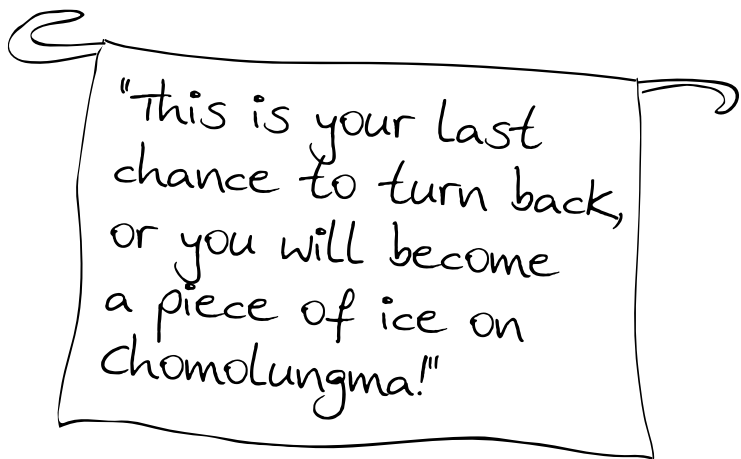 "This is your last
chance to turn back,
or you will become
a piece of ice on
Chomolungma!"